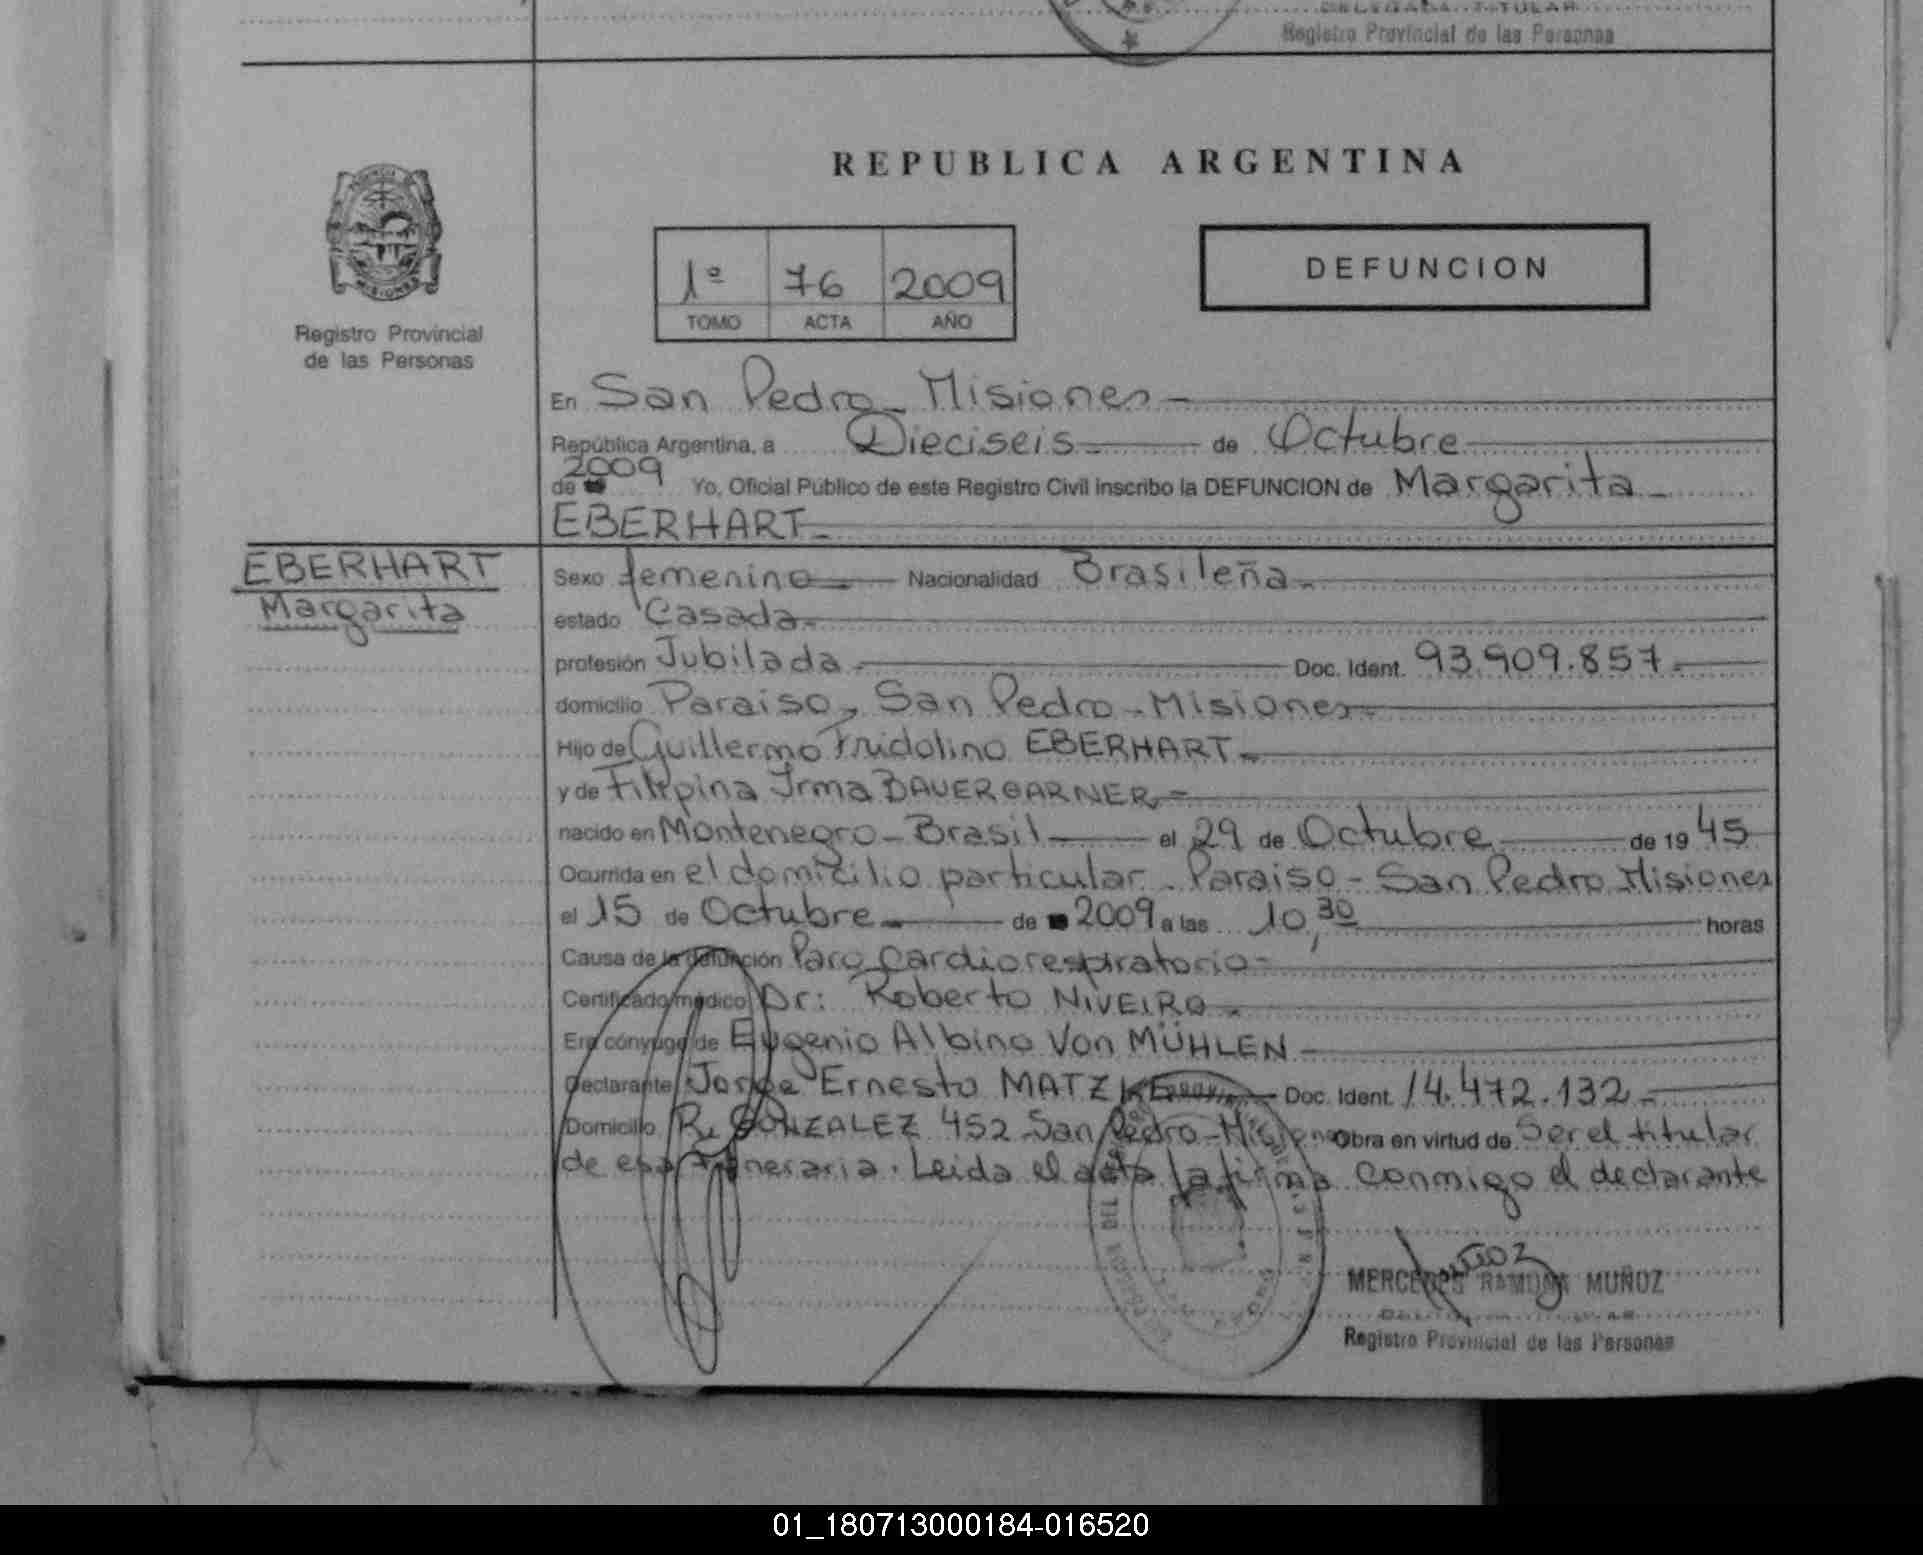 Registro Provincial de las Personas
REPUBLICA ARGENTINA
1º 76 2009
TOMO ACTA AÑO
DEFUNCION
MISIONES
Registro Provincial
de las Personas
En San Pedro - Misiones
República Argentina, a Dieciseis de Octubre
de 2009 Yo, Oficial Público de este Registro Civil inscribo la DEFUNCION de Margarita
EBERHART
EBERHART
Margarita
Sexo femenino Nacionalidad Brasileña
estado Casada
profesión Jubilada Doc. Ident. 93.909.857
domicilio Paraiso, San Pedro - Misiones
Hijo de Guillermo Fridolino EBERHART
y de Filipina Irma BAUERGARNER
nacido en Montenegro - Brasil el 29 de Octubre de 19 45
Ocurrida en el domicilio particular. Paraiso - San Pedro Misiones
el 15 de Octubre de 2009 a las 10,30 horas
Causa de la defunción Paro Cardiorespiratorio
Certificado médico Dr: Roberto NIVEIRO
Era cónyuge de Eugenio Albino Von MÜHLEN
Declarante Jorge Ernesto MATZKE Doc. Ident. 14.472.132
Domicilio R. GONZALEZ 452 San Pedro - Misiones Obra en virtud de Ser el titular
de esa funeraria. Leida el acta la firma conmigo el declarante
MERCEDES RAMONA MUÑOZ
Registro Provincial de las Personas
01_180713000184-016520